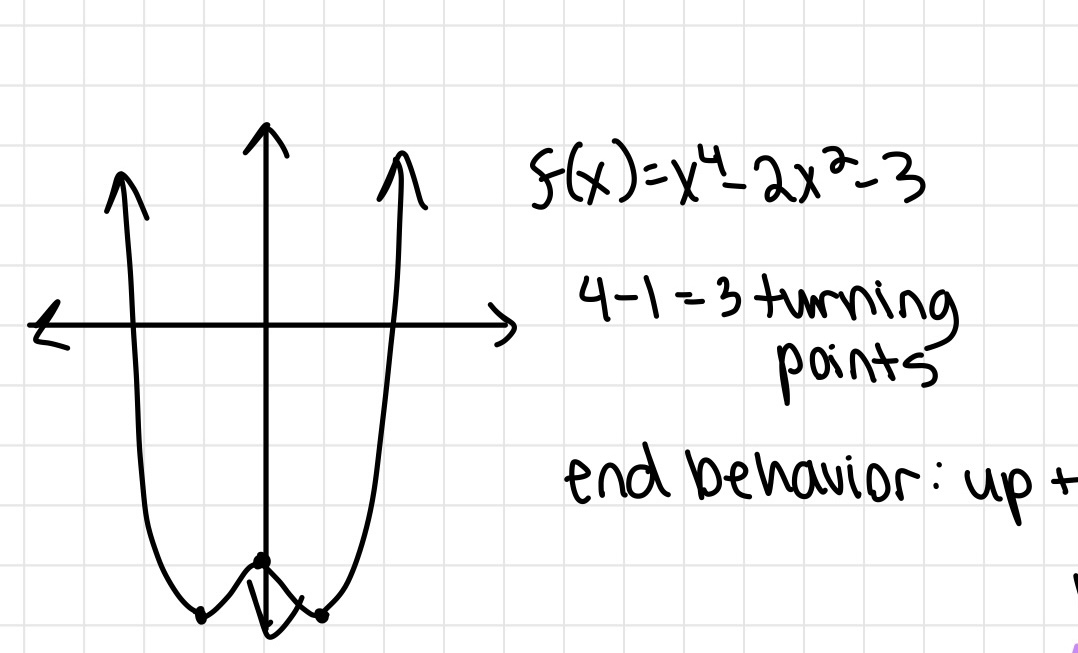 f(x)=x⁴-2x²-3
4-1=3 turning
points
end behavior: up +